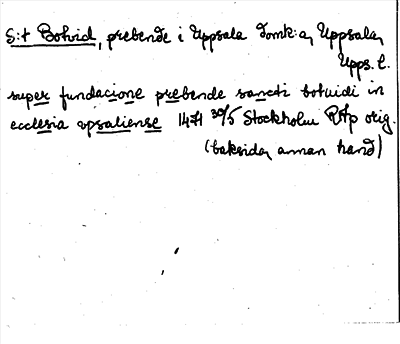 S:t Botvid, prebende i Uppsala domk:a, Uppsala,
Upps. l.
super fundacione prebende sancti botuidi in
ecclesia vpsaliense 1471 30/5 Stockholm RAp orig.
(baksida, annan hand)